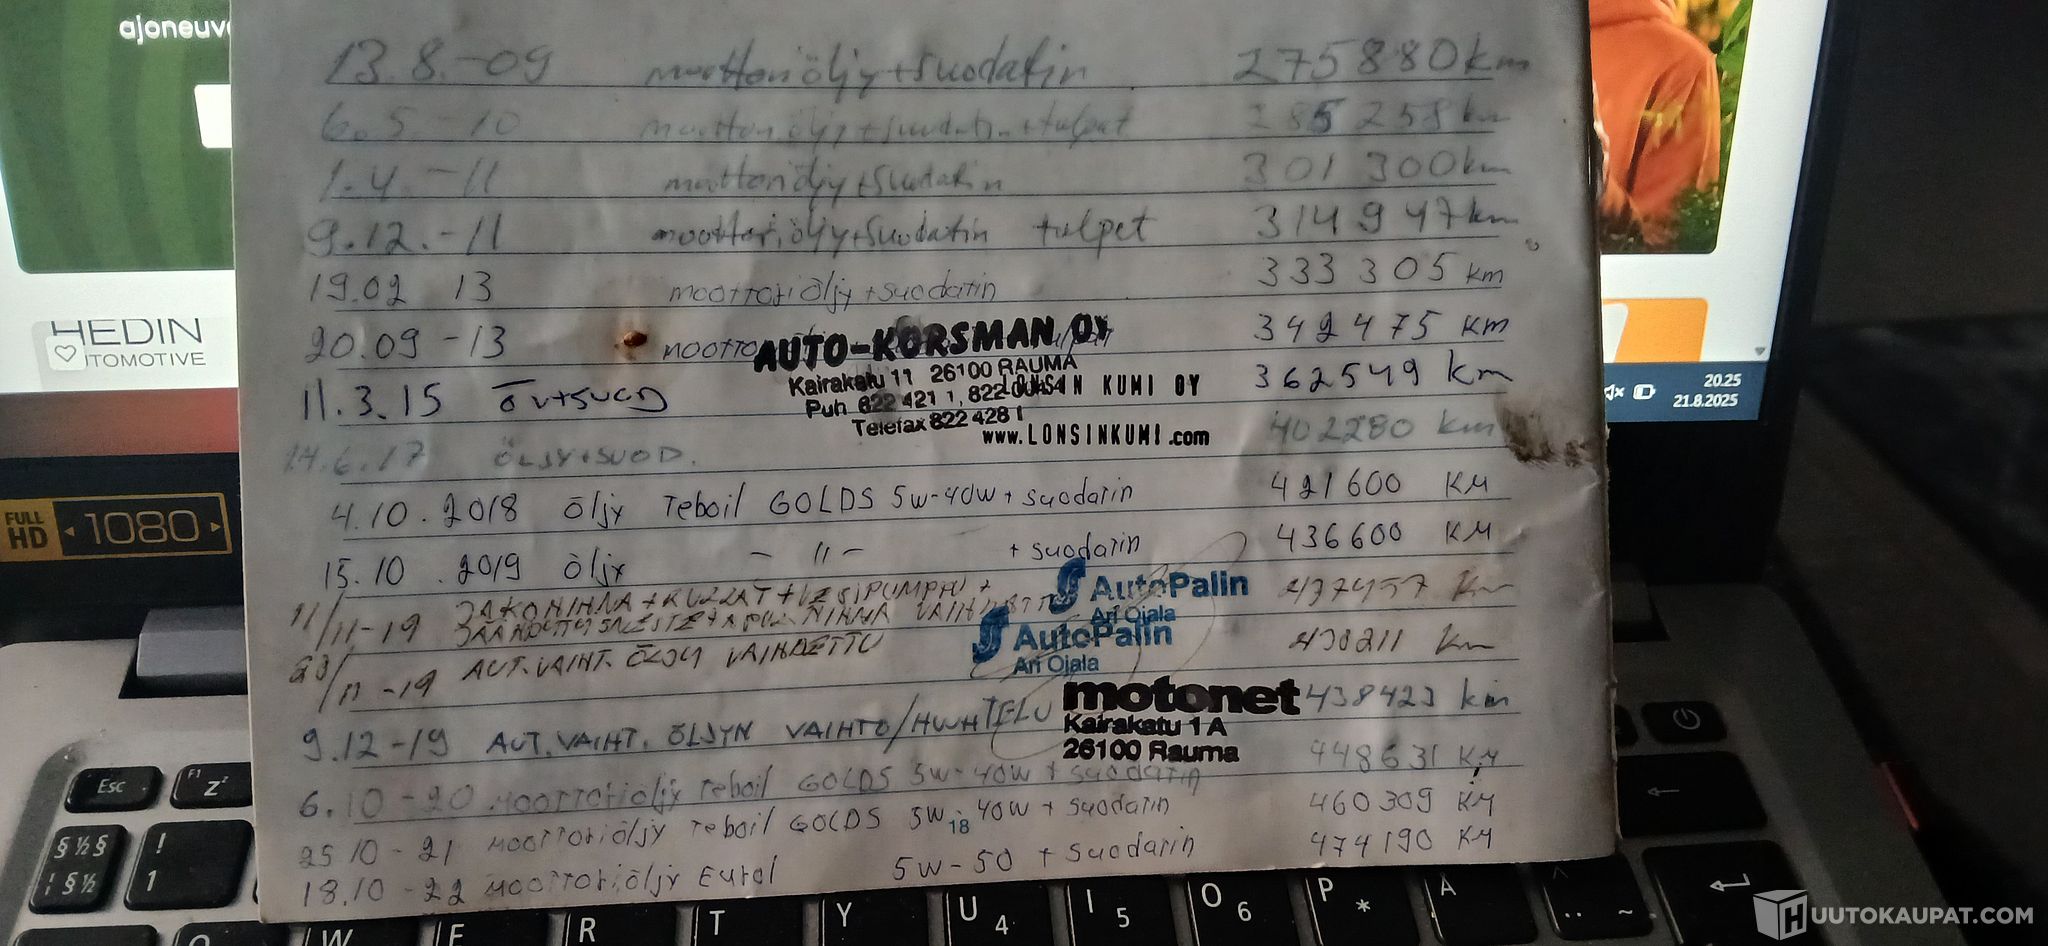 ajoneuv
13.8.-09 moottoriöljy+suodatin 275880km
6.5.-10 moottoriöljy+suodatin+tulpat 285258km
1.4.-11 moottoriöljy+suodatin 301300km
9.12.-11 moottoriöljy+suodatin tulpet 314947km
19.02 13 moottoriöljy+suodatin 333305 km
20.09 -13 342475 km
AUTO-KORSMAN OY
Kairakatu 11 26100 RAUMA
Puh 822 421 1, 822
Telefax 822 428 1
LONSIN KUMI OY
www.LONSINKUMI.com
11.3.15 362549 km
14.6.17 ÖLJY+SUOD. 402280 km
4.10.2018 öljy Teboil GOLDS 5w-40w + suodatin 421600 KM
15.10.2019 öljy -11- + suodatin 436600 KM
11/11-19 JAKOHIHNA + + VESIPUMPPU + 437457 km
AutoPalin
Ari Ojala
AutoPalin
Ari Ojala
28/11-19 AUT.VAIHT. ÖLJY VAIHDETTU 438211 km
9.12-19 AUT.VAIHT. ÖLJYN VAIHTO/HUUHTELU 438423 km
motonet
Kairakatu 1 A
26100 Rauma
6.10-20 moottoriöljy Teboil GOLDS 5w-40w + suodatin 448631 KM
25.10-21 moottoriöljy Teboil GOLDS 5w-40w + suodatin 460309 KM
18
18.10-22 moottoriöljy Eurol 5w-50 + suodatin 474190 KM
HEDIN
UTOMOTIVE
20.25
21.8.2025
FULL HD 1080
Esc F1 Z
§ ½ §
! 1
W E R T Y U 4 I 5 O 6 P * Å
HUUTOKAUPAT.COM